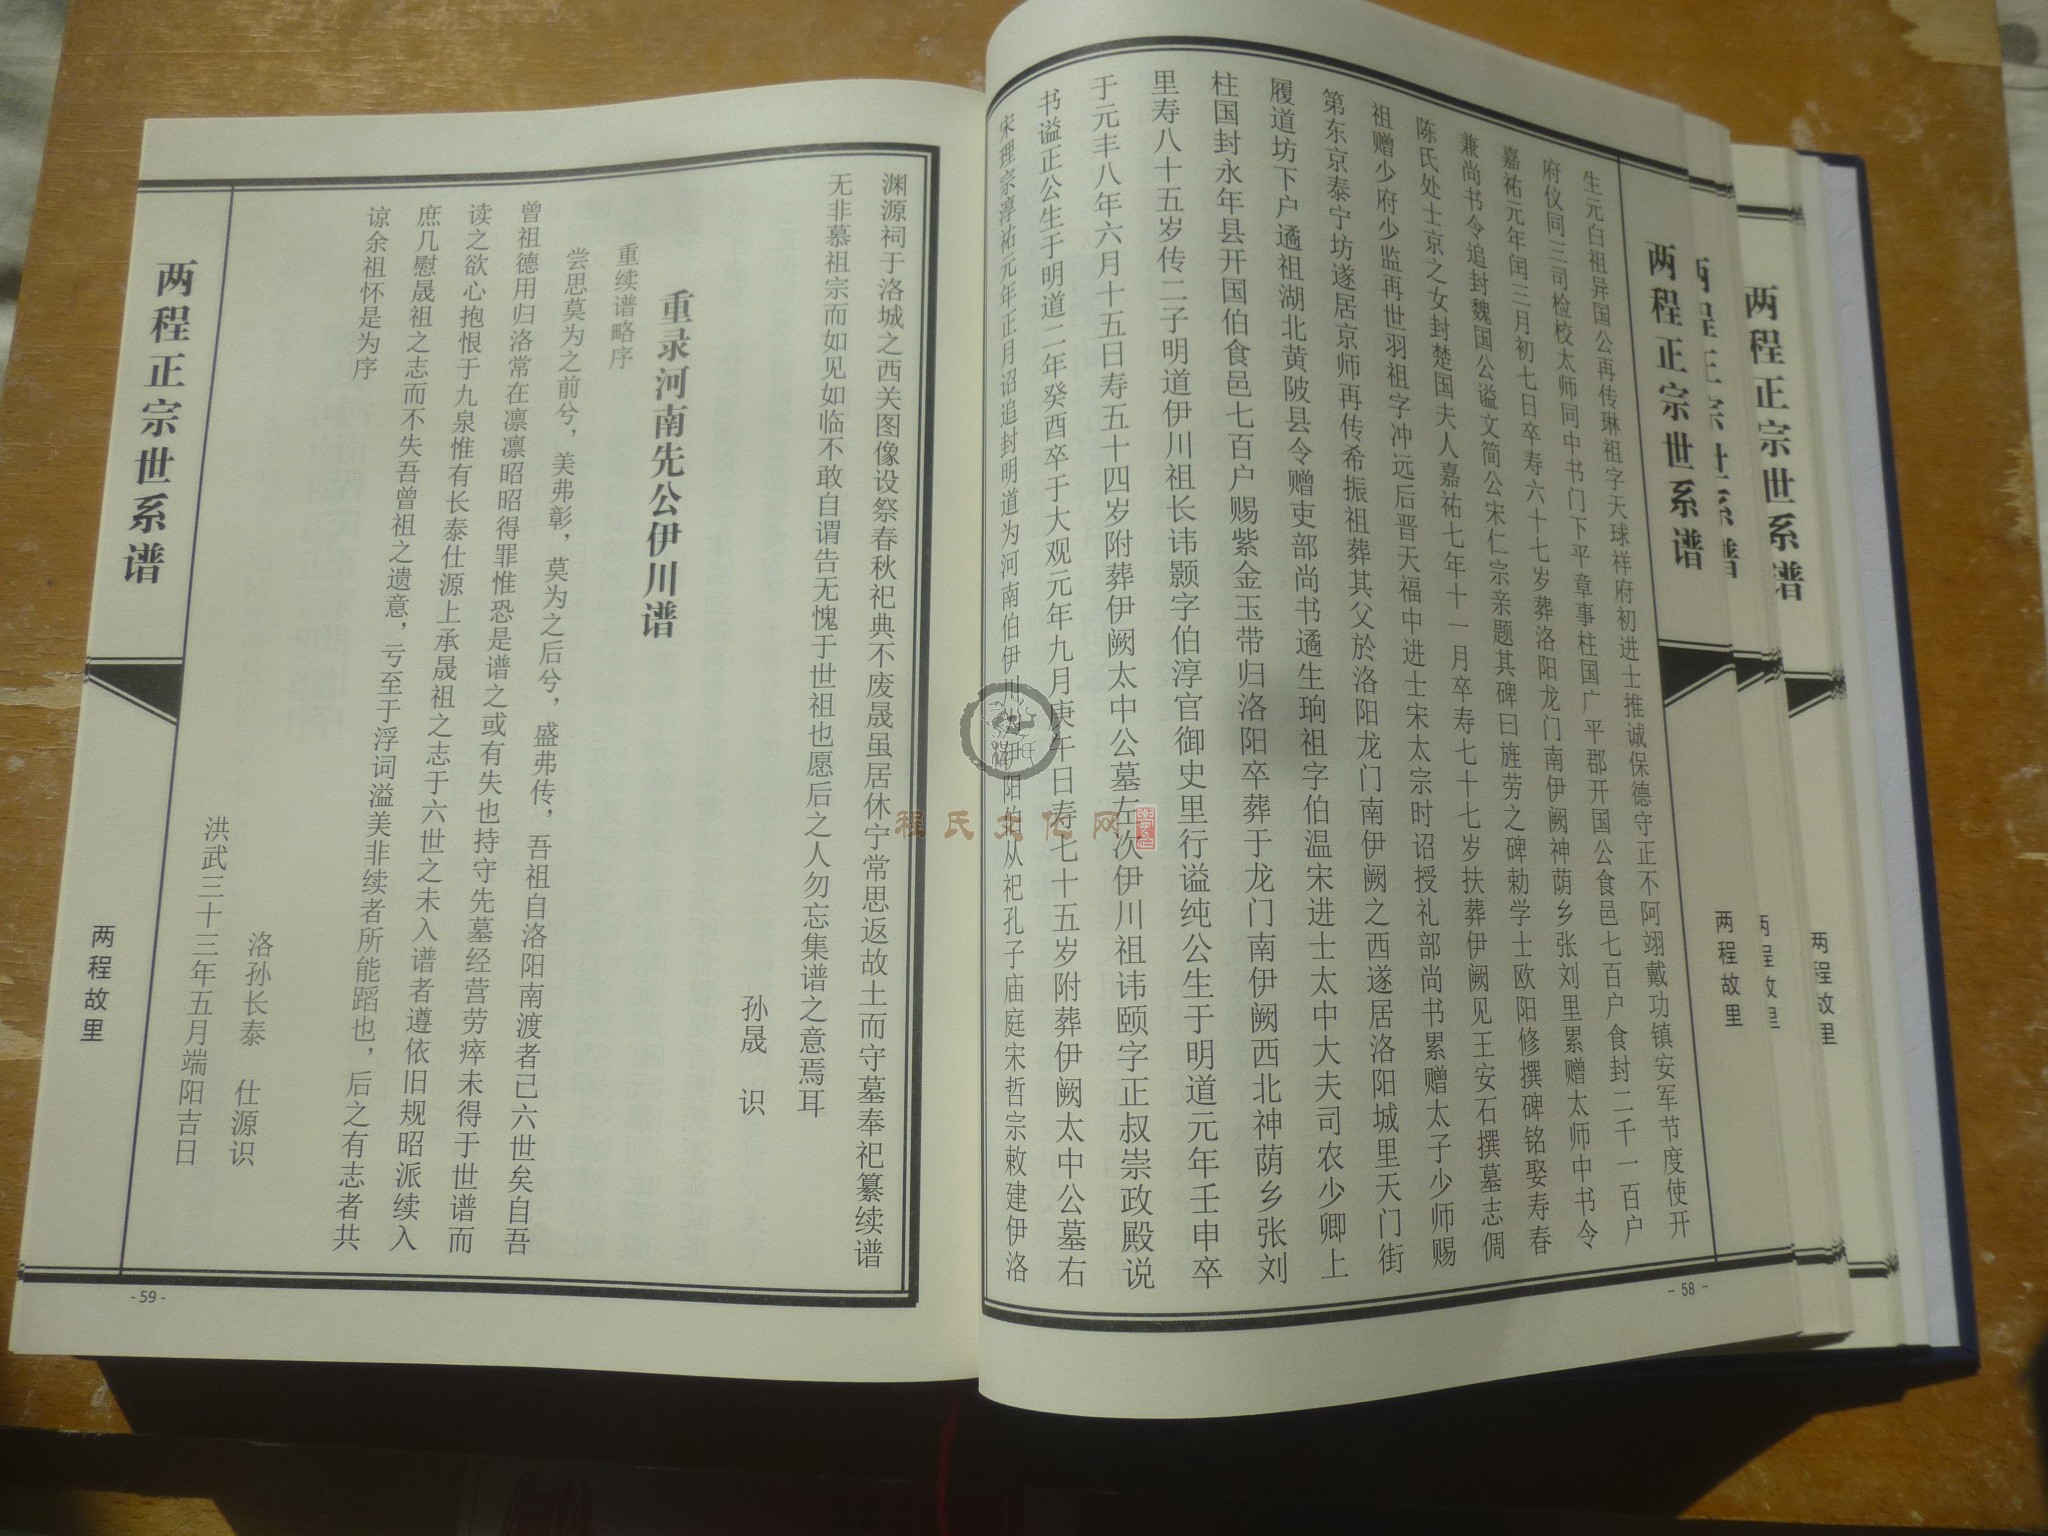 两程正宗世系谱
两程故里
两程正宗世系谱
两程故里
两程正宗世系谱
两程故里
生元白祖异国公再传琳祖字天球祥府初进士推诚保德守正不阿翊戴功镇安军节度使开
府仪同三司检校太师同中书门下平章事柱国广平郡开国公食邑七百户食封二千一百户
嘉祐元年闰三月初七日卒寿六十七岁葬洛阳龙门南伊阙神荫乡张刘里累赠太师中书令
兼尚书令追封魏国公谥文简公宋仁宗亲题其碑曰旌劳之碑勅学士欧阳修撰碑铭娶寿春
陈氏处士京之女封楚国夫人嘉祐七年十一月卒寿七十七岁扶葬伊阙见王安石撰墓志倜
祖赠少府少监再世羽祖字冲远后晋天福中进士宋太宗时诏授礼部尚书累赠太子少师赐
第东京泰宁坊遂居京师再传希振祖葬其父於洛阳龙门南伊阙之西遂居洛阳城里天门街
履道坊下户遹祖湖北黄陂县令赠吏部尚书遹生珦祖字伯温宋进士太中大夫司农少卿上
柱国封永年县开国伯食邑七百户赐紫金玉带归洛阳卒葬于龙门南伊阙西北神荫乡张刘
里寿八十五岁传二子明道伊川祖长讳颢字伯淳官御史里行谥纯公生于明道元年壬申卒
于元丰八年六月十五日寿五十四岁附葬伊阙太中公墓左次伊川祖讳颐字正叔崇政殿说
书谥正公生于明道二年癸酉卒于大观元年九月庚午日寿七十五岁附葬伊阙太中公墓右
宋理宗淳祐元年正月诏追封明道为河南伯伊川为伊阳伯从祀孔子庙庭宋哲宗敕建伊洛
- 58 -
程氏文化网
渊源祠于洛城之西关图像设祭春秋祀典不废晟虽居休宁常思返故土而守墓奉祀纂续谱
无非慕祖宗而如见如临不敢自谓告无愧于世祖也愿后之人勿忘集谱之意焉耳
孙晟 识
重录河南先公伊川谱
重续谱略序
尝思莫为之前兮，美弗彰，莫为之后兮，盛弗传，吾祖自洛阳南渡者已六世矣自吾
曾祖德用归洛常在凛凛昭昭得罪惟恐是谱之或有失也持守先墓经营劳瘁未得于世谱而
读之欲心抱恨于九泉惟有长泰仕源上承晟祖之志于六世之未入谱者遵依旧规昭派续入
庶几慰晟祖之志而不失吾曾祖之遗意，亏至于浮词溢美非续者所能蹈也，后之有志者共
谅余祖怀是为序
洛孙长泰 仕源识
洪武三十三年五月端阳吉日
两程正宗世系谱
两程故里
- 59 -